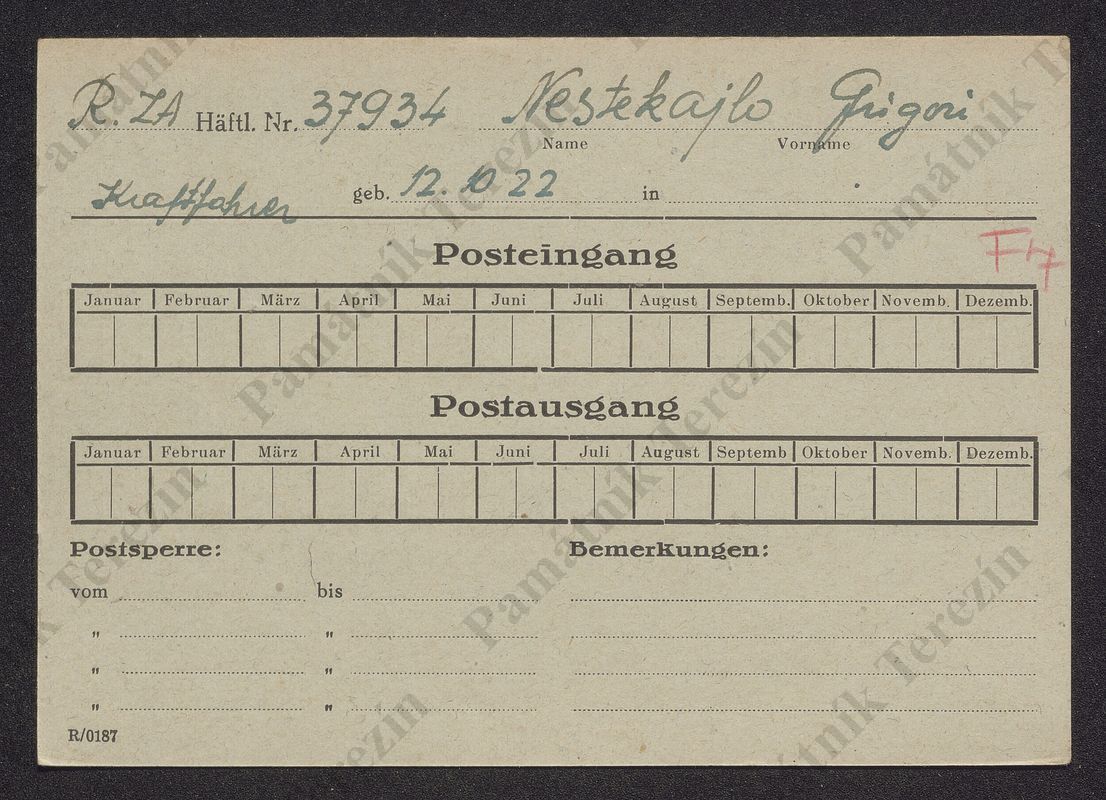 R. ZA Häftl. Nr. 37934 Nestekajlo Grigori
Name Vorname
Kraftfahrer geb. 12. 10 22 in
Posteingang
Januar Februar März April Mai Juni Juli August Septemb. Oktober Novemb. Dezemb.
Postausgang
Januar Februar März April Mai Juni Juli August Septemb Oktober Novemb. Dezemb.
Postsperre: Bemerkungen:
vom bis
" "
" "
" "
R/0187
Památník Terezín